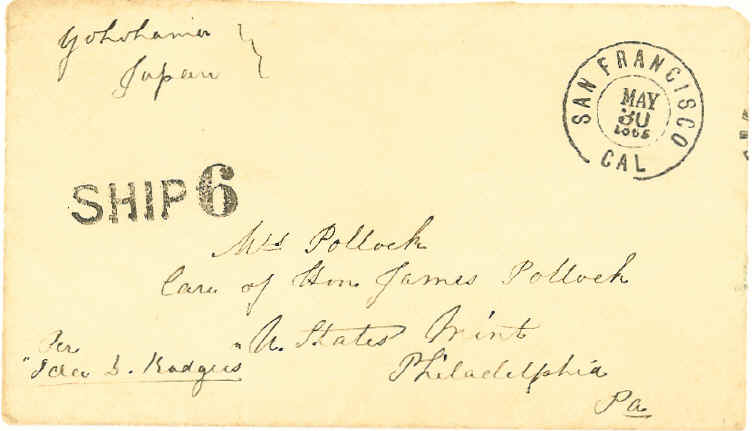 Yokohama
Japan
SAN FRANCISCO
MAY
30
CAL
SHIP 6
Mrs Pollock
Care of Hon James Pollock
U. States Mint
Philadelphia
Pa
Per
"Ida D. Rodgers"